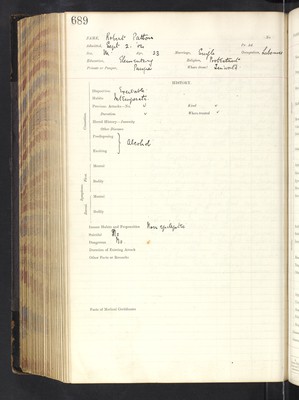 689
NAME, Robert Patton
Admitted, Sept. 2. 04
Sex, M Age, 23 Marriage, Single Occupation, Labourer
Education, Elementary Religion, Protestant
Private or Pauper, Pauper Whence Come?
HISTORY.
Disposition Excitable
Habits Intemperate
Previous Attacks—No. Kind
Duration Where treated
Hered. History—Insanity
Other Diseases
Predisposing
Alcohol
Exciting
Causation
Mental
Bodily
Mental
Bodily
Symptoms
First
Recent
Insane Habits and Propensities
Suicidal No
Dangerous No
Duration of Existing Attack
Other Facts or Remarks
Facts of Medical Certificates